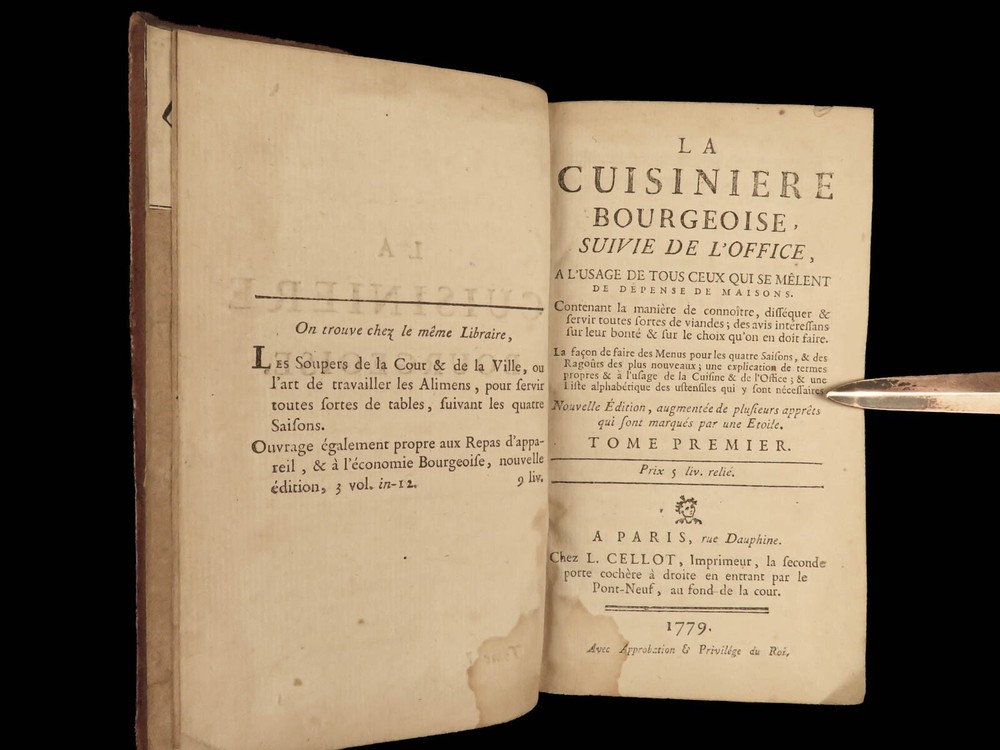 On trouve chez le même Libraire,
LEs Soupers de la Cour & de la Ville, ou
l'art de travailler les Alimens, pour ſervir
toutes ſortes de tables, ſuivant les quatre
Saiſons.
Ouvrage également propre aux Repas d'appa-
reil, & à l'économie Bourgeoiſe, nouvelle
édition, 3 vol. in-12. 9 liv.
LA
CUISINIERE
BOURGEOISE,
SUIVIE DE L'OFFICE,
A L'USAGE DE TOUS CEUX QUI SE MÊLENT
DE DÉPENSE DE MAISONS.
Contenant la manière de connoître, diſſéquer &
ſervir toutes ſortes de viandes; des avis intéreſſans
ſur leur bonté & ſur le choix qu'on en doit faire.
La façon de faire des Menus pour les quatre Saiſons, & des
Ragoûts des plus nouveaux; une explication de termes
propres & à l'uſage de la Cuiſine & de l'Office; & une
Liſte alphabétique des uſtenſiles qui y ſont néceſſaires.
Nouvelle Édition, augmentée de pluſieurs apprêts
qui ſont marqués par une Etoile.
TOME PREMIER.
Prix 5 liv. relié.
A PARIS, rue Dauphine.
Chez L. CELLOT, Imprimeur, la ſeconde
porte cochère à droite en entrant par le
Pont-Neuf, au fond de la cour.
1779.
Avec Approbation & Privilége du Roi.